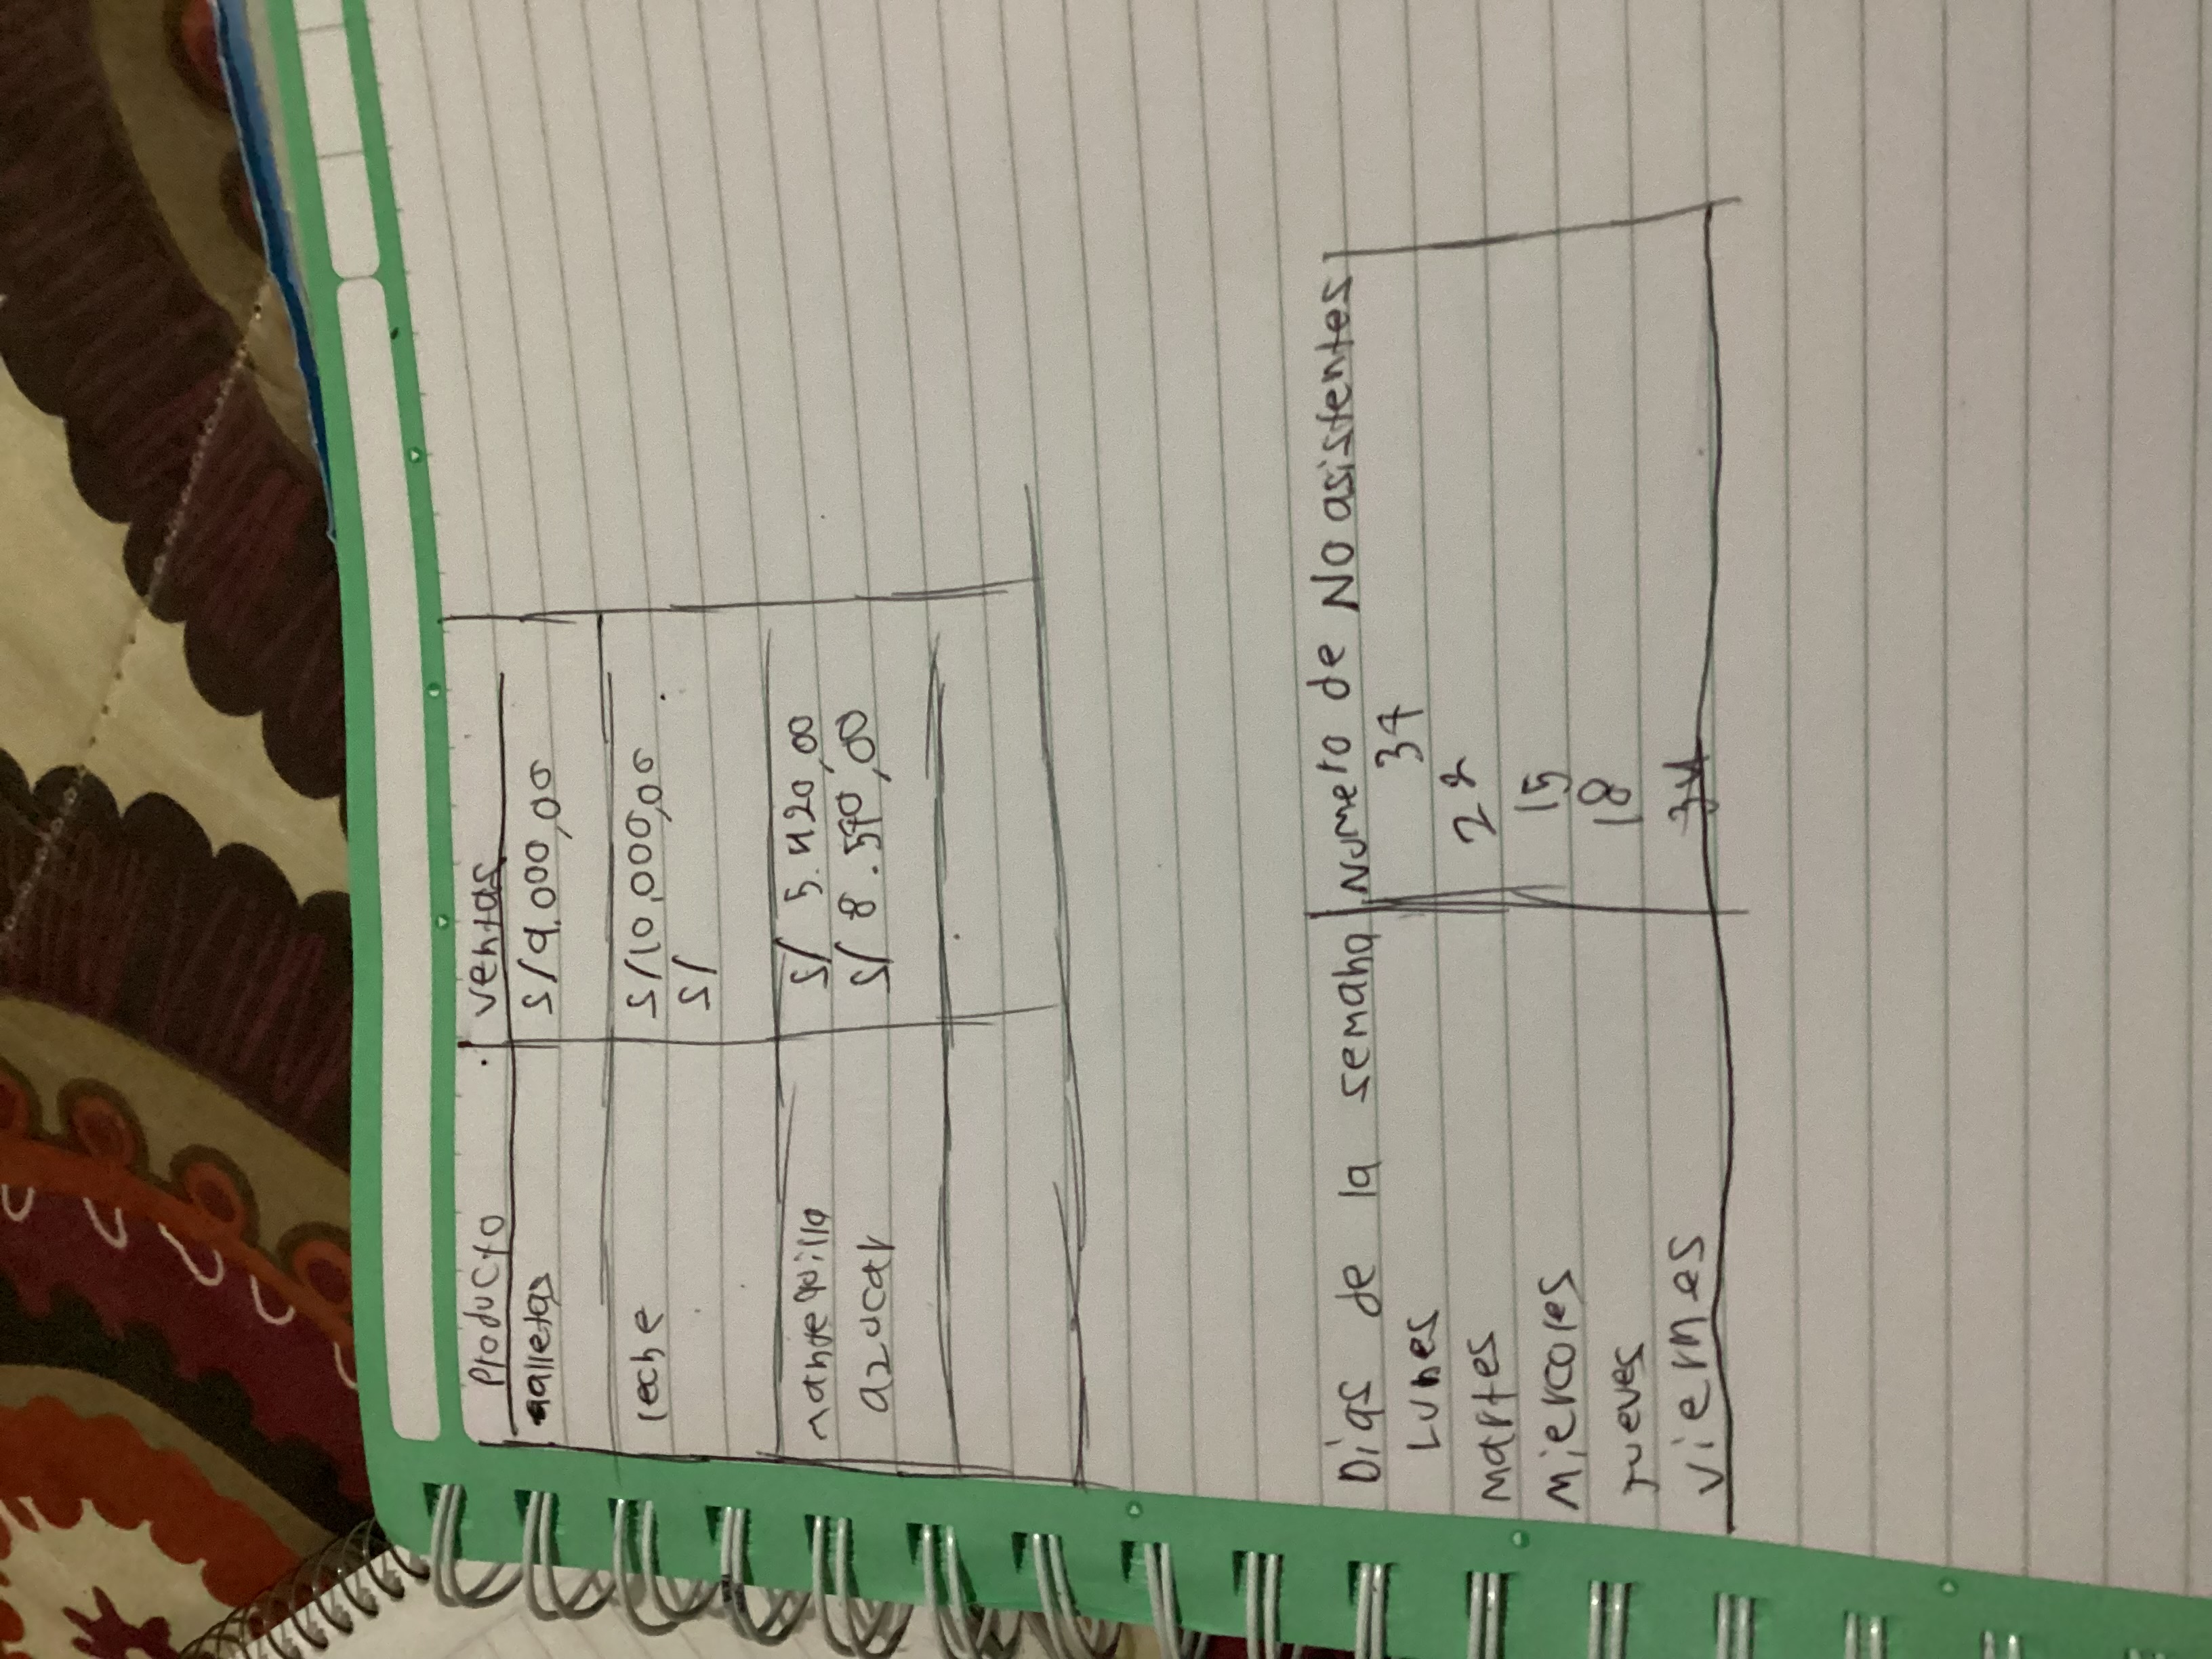 Producto ventas
galletas S/9.000,00
leche S/10,000,00
S/
mantequilla S/ 5.420,00
azucar S/ 8.590,00
Dias de la semana Numero de No asistentes
Lunes 34
martes 22
Miercoles 15
jueves 18
viernes 34